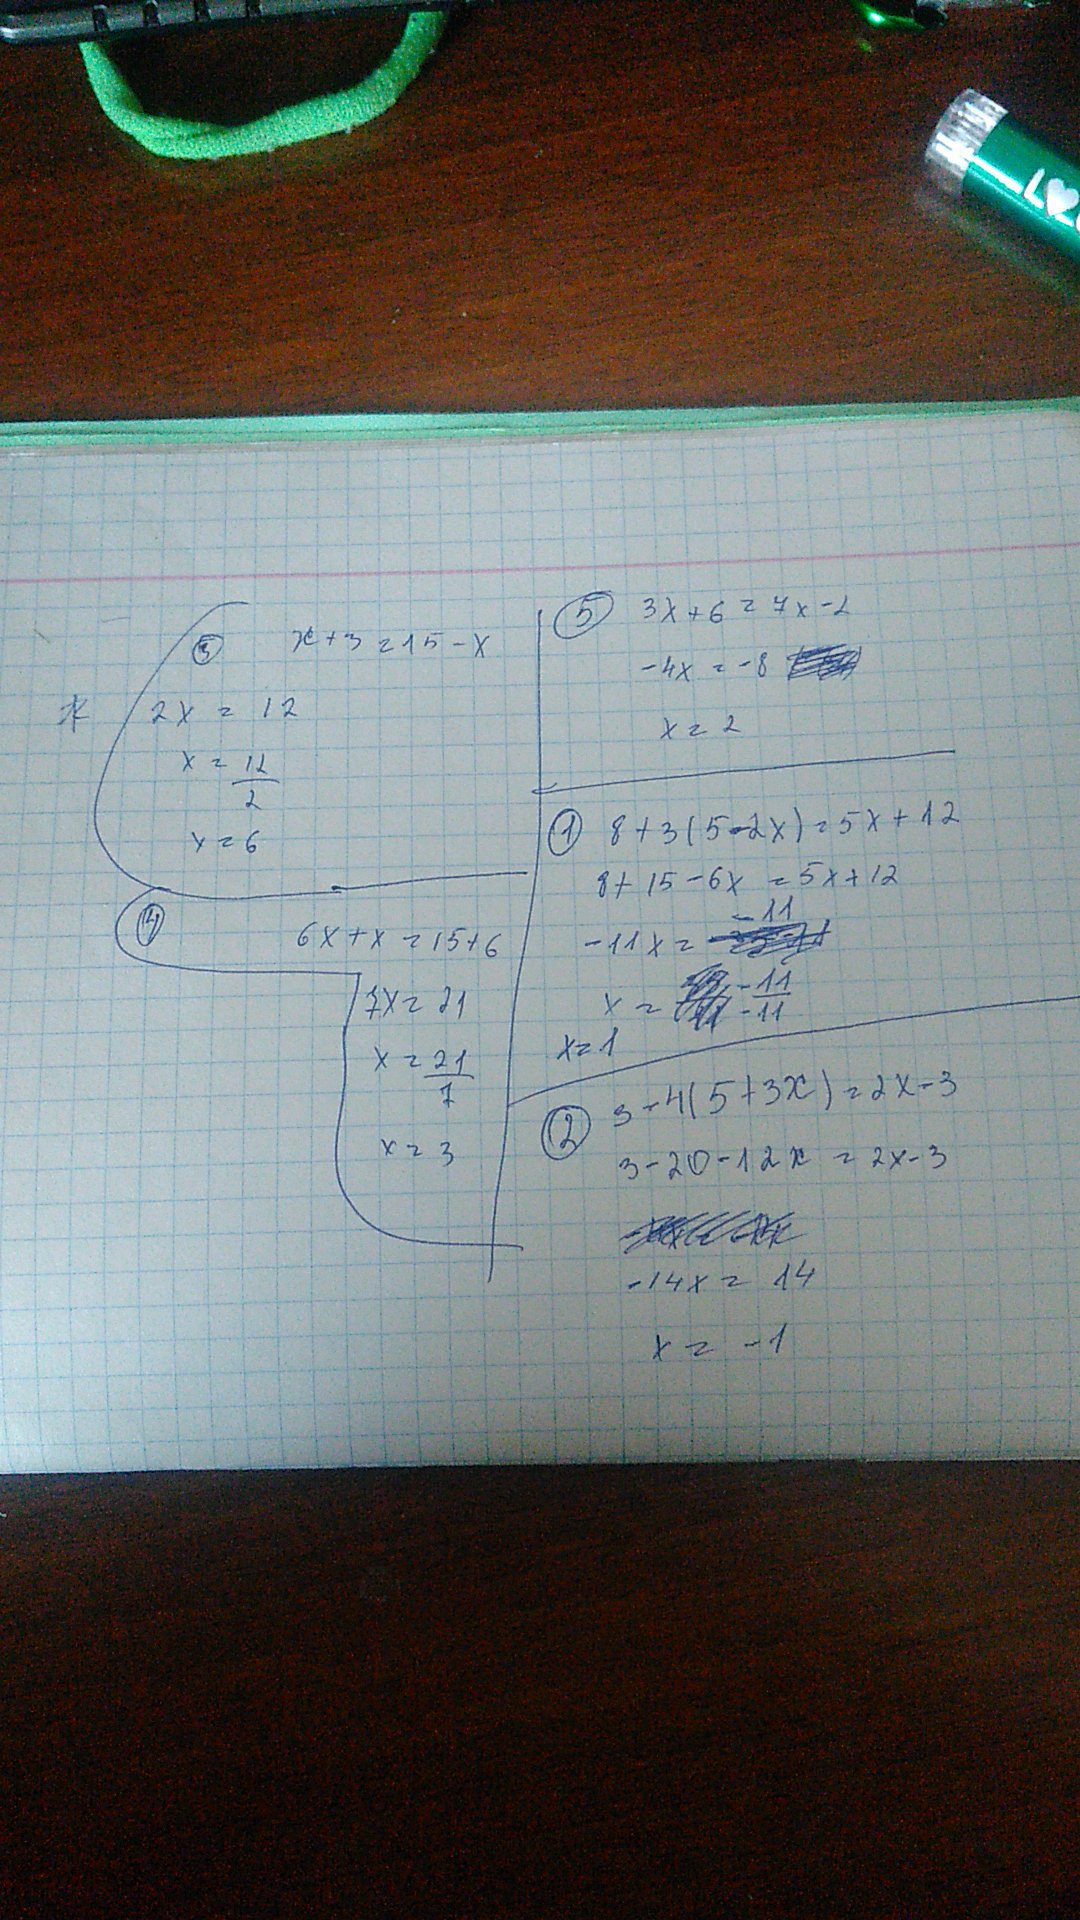 ③ x+3=15-x
2x = 12
x = 12/2
x=6
④ 6x+x=15+6
7x=21
x=21/7
x=3
⑤ 3x+6=7x-2
-4x=-8
x=2
① 8+3(5-2x)=5x+12
8+15-6x=5x+12
-11x= -11
x= -11/-11
x=1
② 3-4(5+3x)=2x-3
3-20-12x=2x-3
-14x=14
x=-1